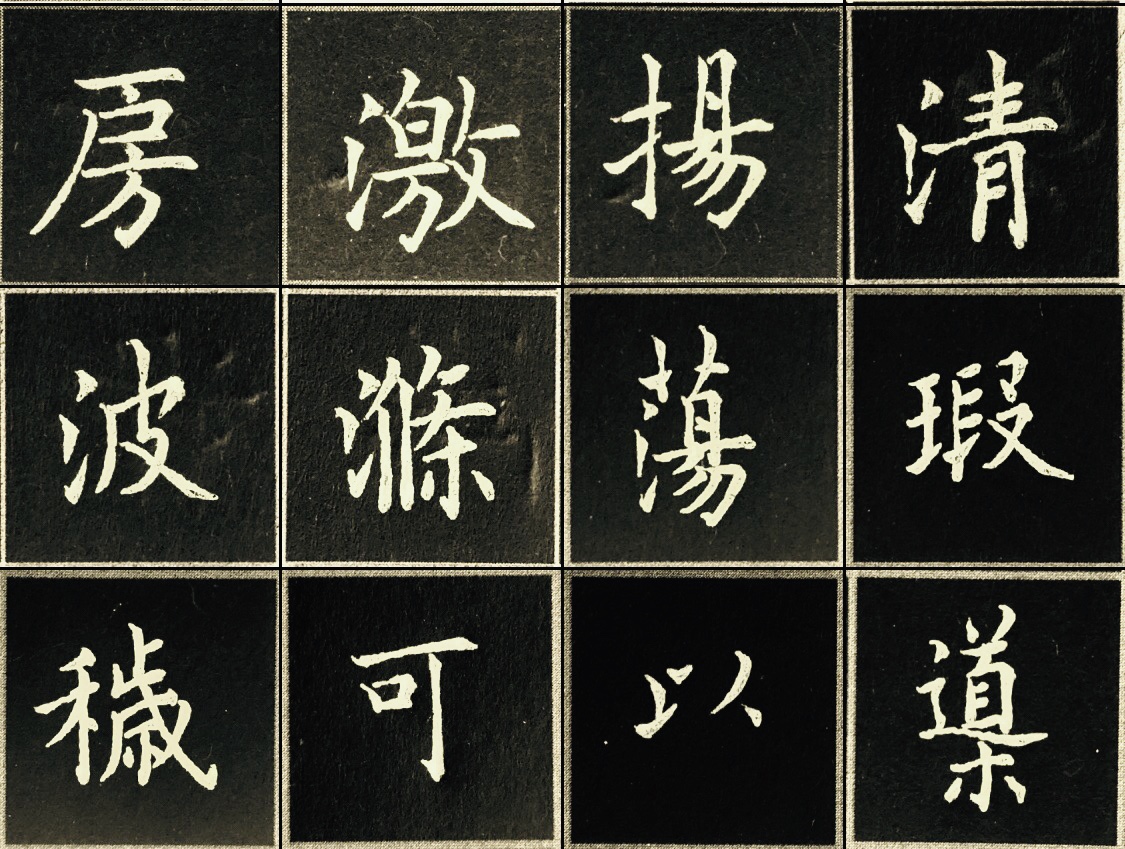 房激揚清
波滌蕩瑕
穢可以導